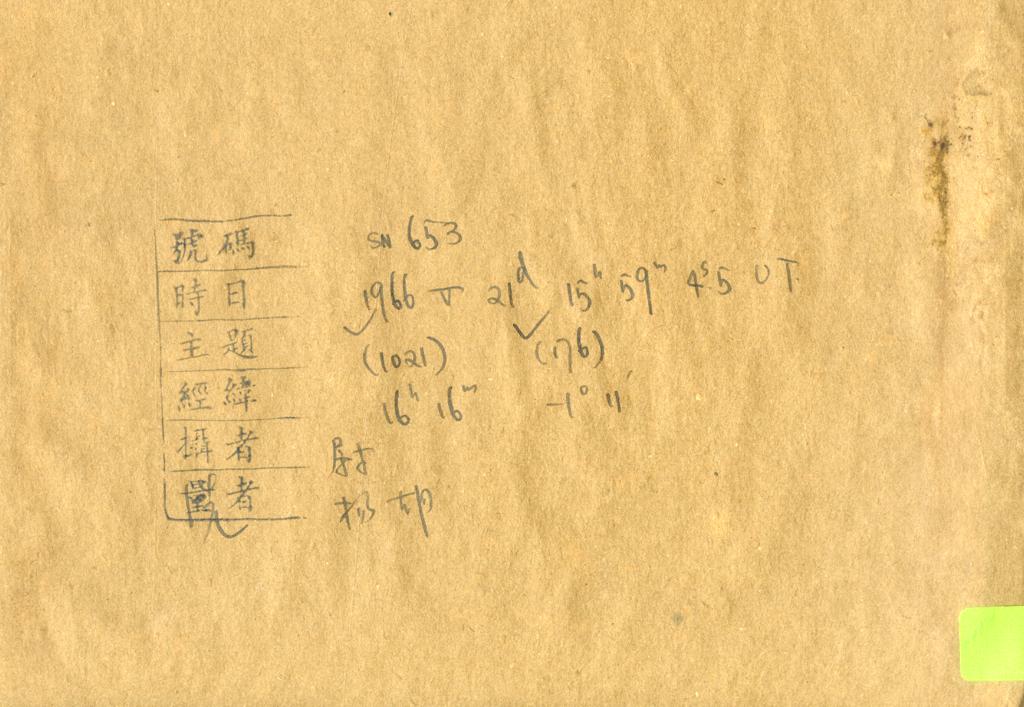 號碼 SN 653
時日 1966 V 21d 15h 59m 4s.5 UT
主題 (1021) (176)
經緯 16h 16m -1° 11'
攝者
量者 杨 胡